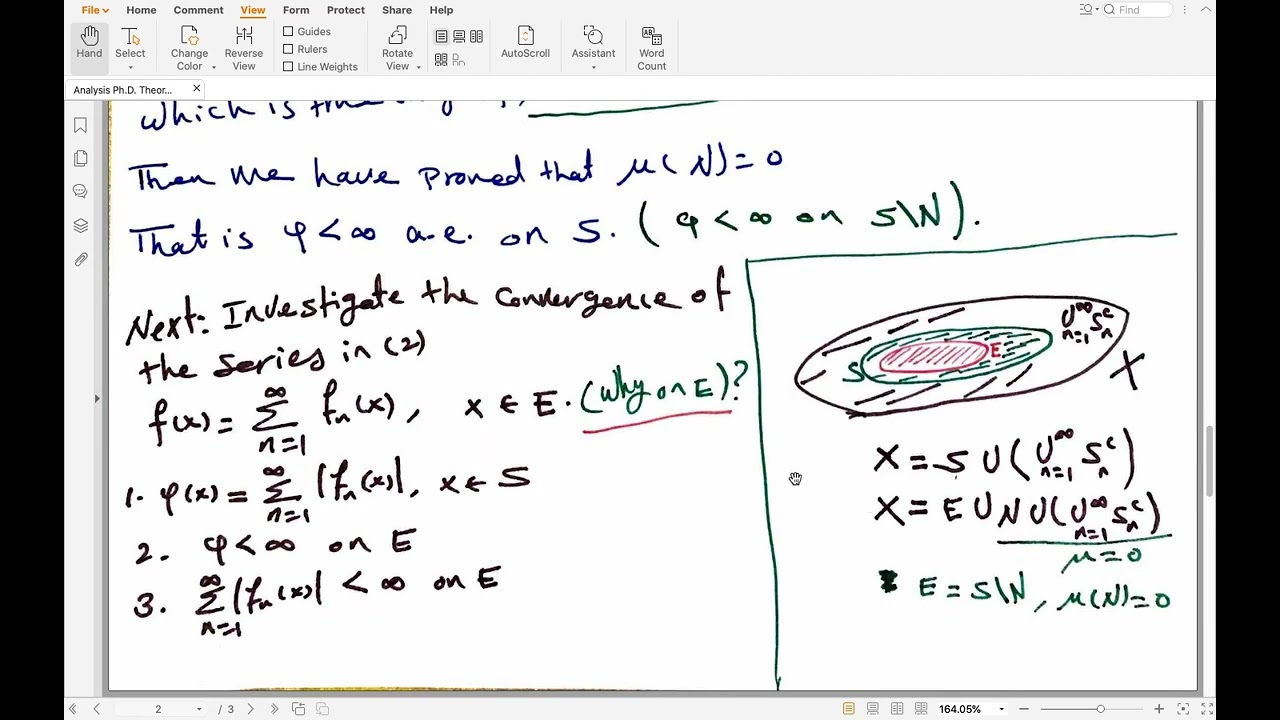 File Home Comment View Form Protect Share Help Find
Hand Select Change Color Reverse View Guides Rulers Line Weights Rotate View AutoScroll Assistant Word Count
Analysis Ph.D. Theor...
which is
Then we have proved that μ(N)=0
That is φ<∞ a.e. on S. (φ<∞ on S\N).
Next: Investigate the convergence of
the series in (2)
f(x)= ∑_{n=1}^{∞} f_n(x), x∈E. (Why on E)?
1. φ(x)= ∑_{n=1}^{∞} |f_n(x)|, x∈S
2. φ<∞ on E
3. ∑_{n=1}^{∞} |f_n(x)| <∞ on E
⋃_{n=1}^{∞} S_n^c
E
S
X
X = S ∪ (⋃_{n=1}^{∞} S_n^c)
X = E ∪ N ∪ (⋃_{n=1}^{∞} S_n^c)
μ=0
E = S\N, μ(N)=0
2 / 3 164.05%